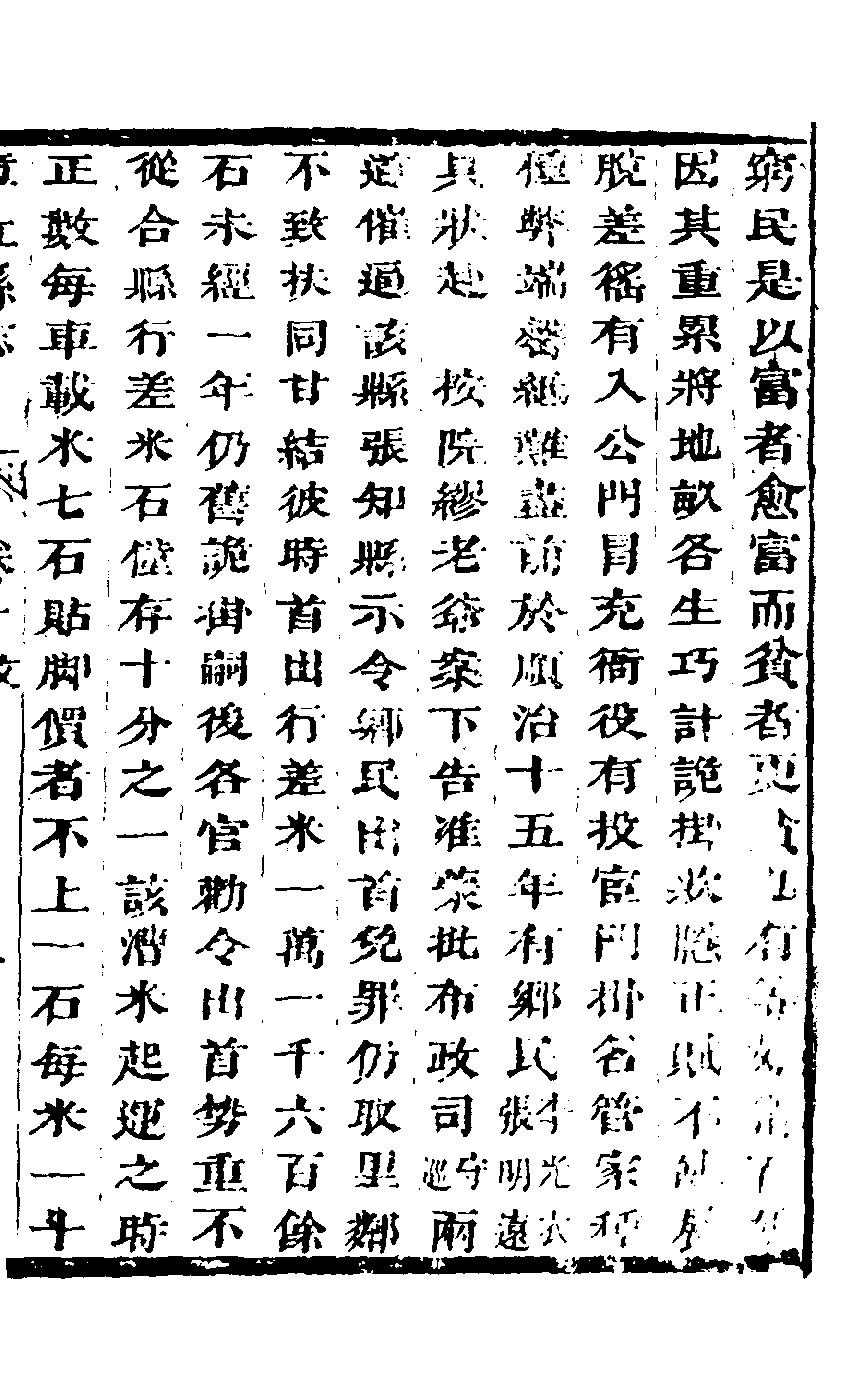 窮民是以富者愈富而貧者更有
因其重累將地畝各生巧計詭掛欺隱正賦不
脫差徭有入公門冒充衙役有投宦門掛名管家種
種弊端密絕難盡前於順治十五年有鄉民李光張明遠
具狀赴　按院繆老爺案下告准蒙批布政司守巡兩
道催逼該縣張知縣示令鄉民出首免罪仍取里鄰
不致扶同甘結彼時首出行差米一萬一千六百餘
石未經一年仍舊詭掛嗣後各官勸令出首勢重不
從合縣行差米石僅存十分之一該漕米起運之時
正數每車載水七石貼脚價者不上一石每米一斗